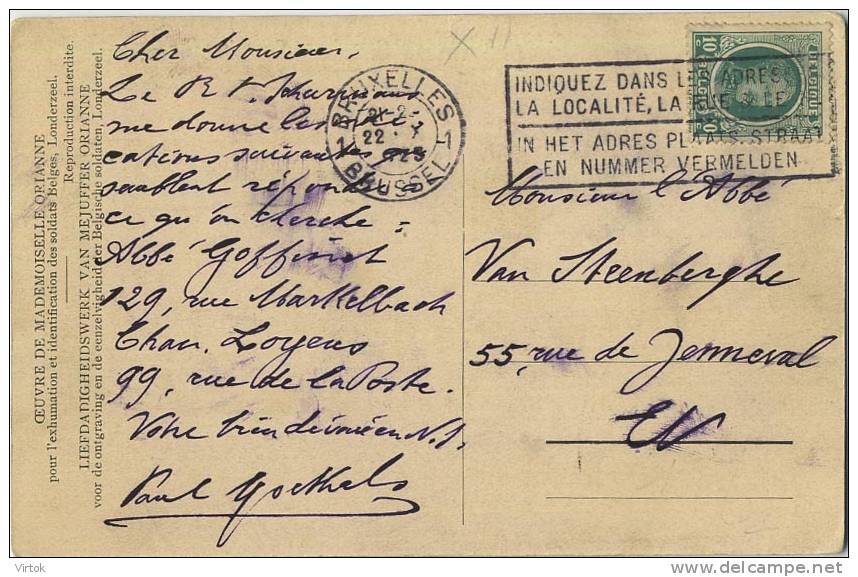 ŒUVRE DE MADEMOISELLE ORIANNE
pour l'exhumation et identification des soldats Belges, Londerzeel.
Reproduction interdite.
LIEFDADIGHEIDSWERK VAN MEJUFFER ORIANNE
voor de ontgraving en de eenzelvigheid der Belgische soldaten, Londerzeel.
Cher Monsieur,
Le R. P.
me donne les indi
cations suivantes qui
semblent répondre à
ce qu'on cherche =
Abbé Goffinet
129, rue Markelbach
Chan. Loyens
99, rue de la Poste.
Votre bien dévoué en N.S.
Paul Goethals
X 11
BRUXELLES 1
22 · X
1 BRUSSEL
INDIQUEZ DANS ADRES
LA LOCALITÉ, LA RUE & LE
IN HET ADRES PLAATS, STRAAT
EN NUMMER VERMELDEN
10 C BELGIQUE 10
Monsieur l'Abbé
Van Steenberghe
55, rue de Jenneval
EV
Virtok
delcampe.net